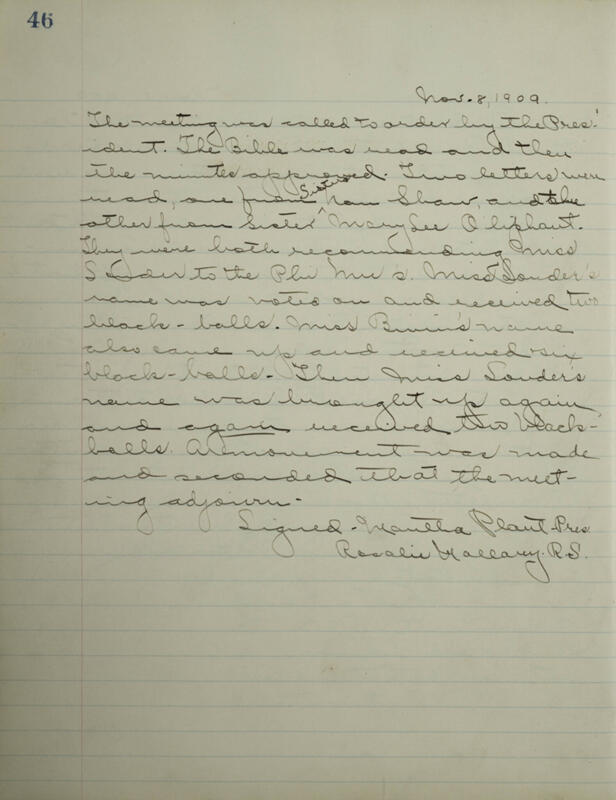 46
Nov. 8, 1909.
The meeting was called to order by the Pres-
ident. The Bible was read and then
the minutes approved. Two letters were
read, one from Sister Nan Shaw, and the
other from Sister Mary Lee Oliphant.
They were both recommending Miss
to the Phi Mu's. Miss Souder's
name was voted on and received two
black-balls. Miss name
also came up and received six
black-balls. Then Miss Souder's
name was brought up again
and again received two black-
balls. A movement was made
and seconded that the meet-
ing adjourn.
Signed - Martha Plant-Pres
Rosalie Mallary. R.S.